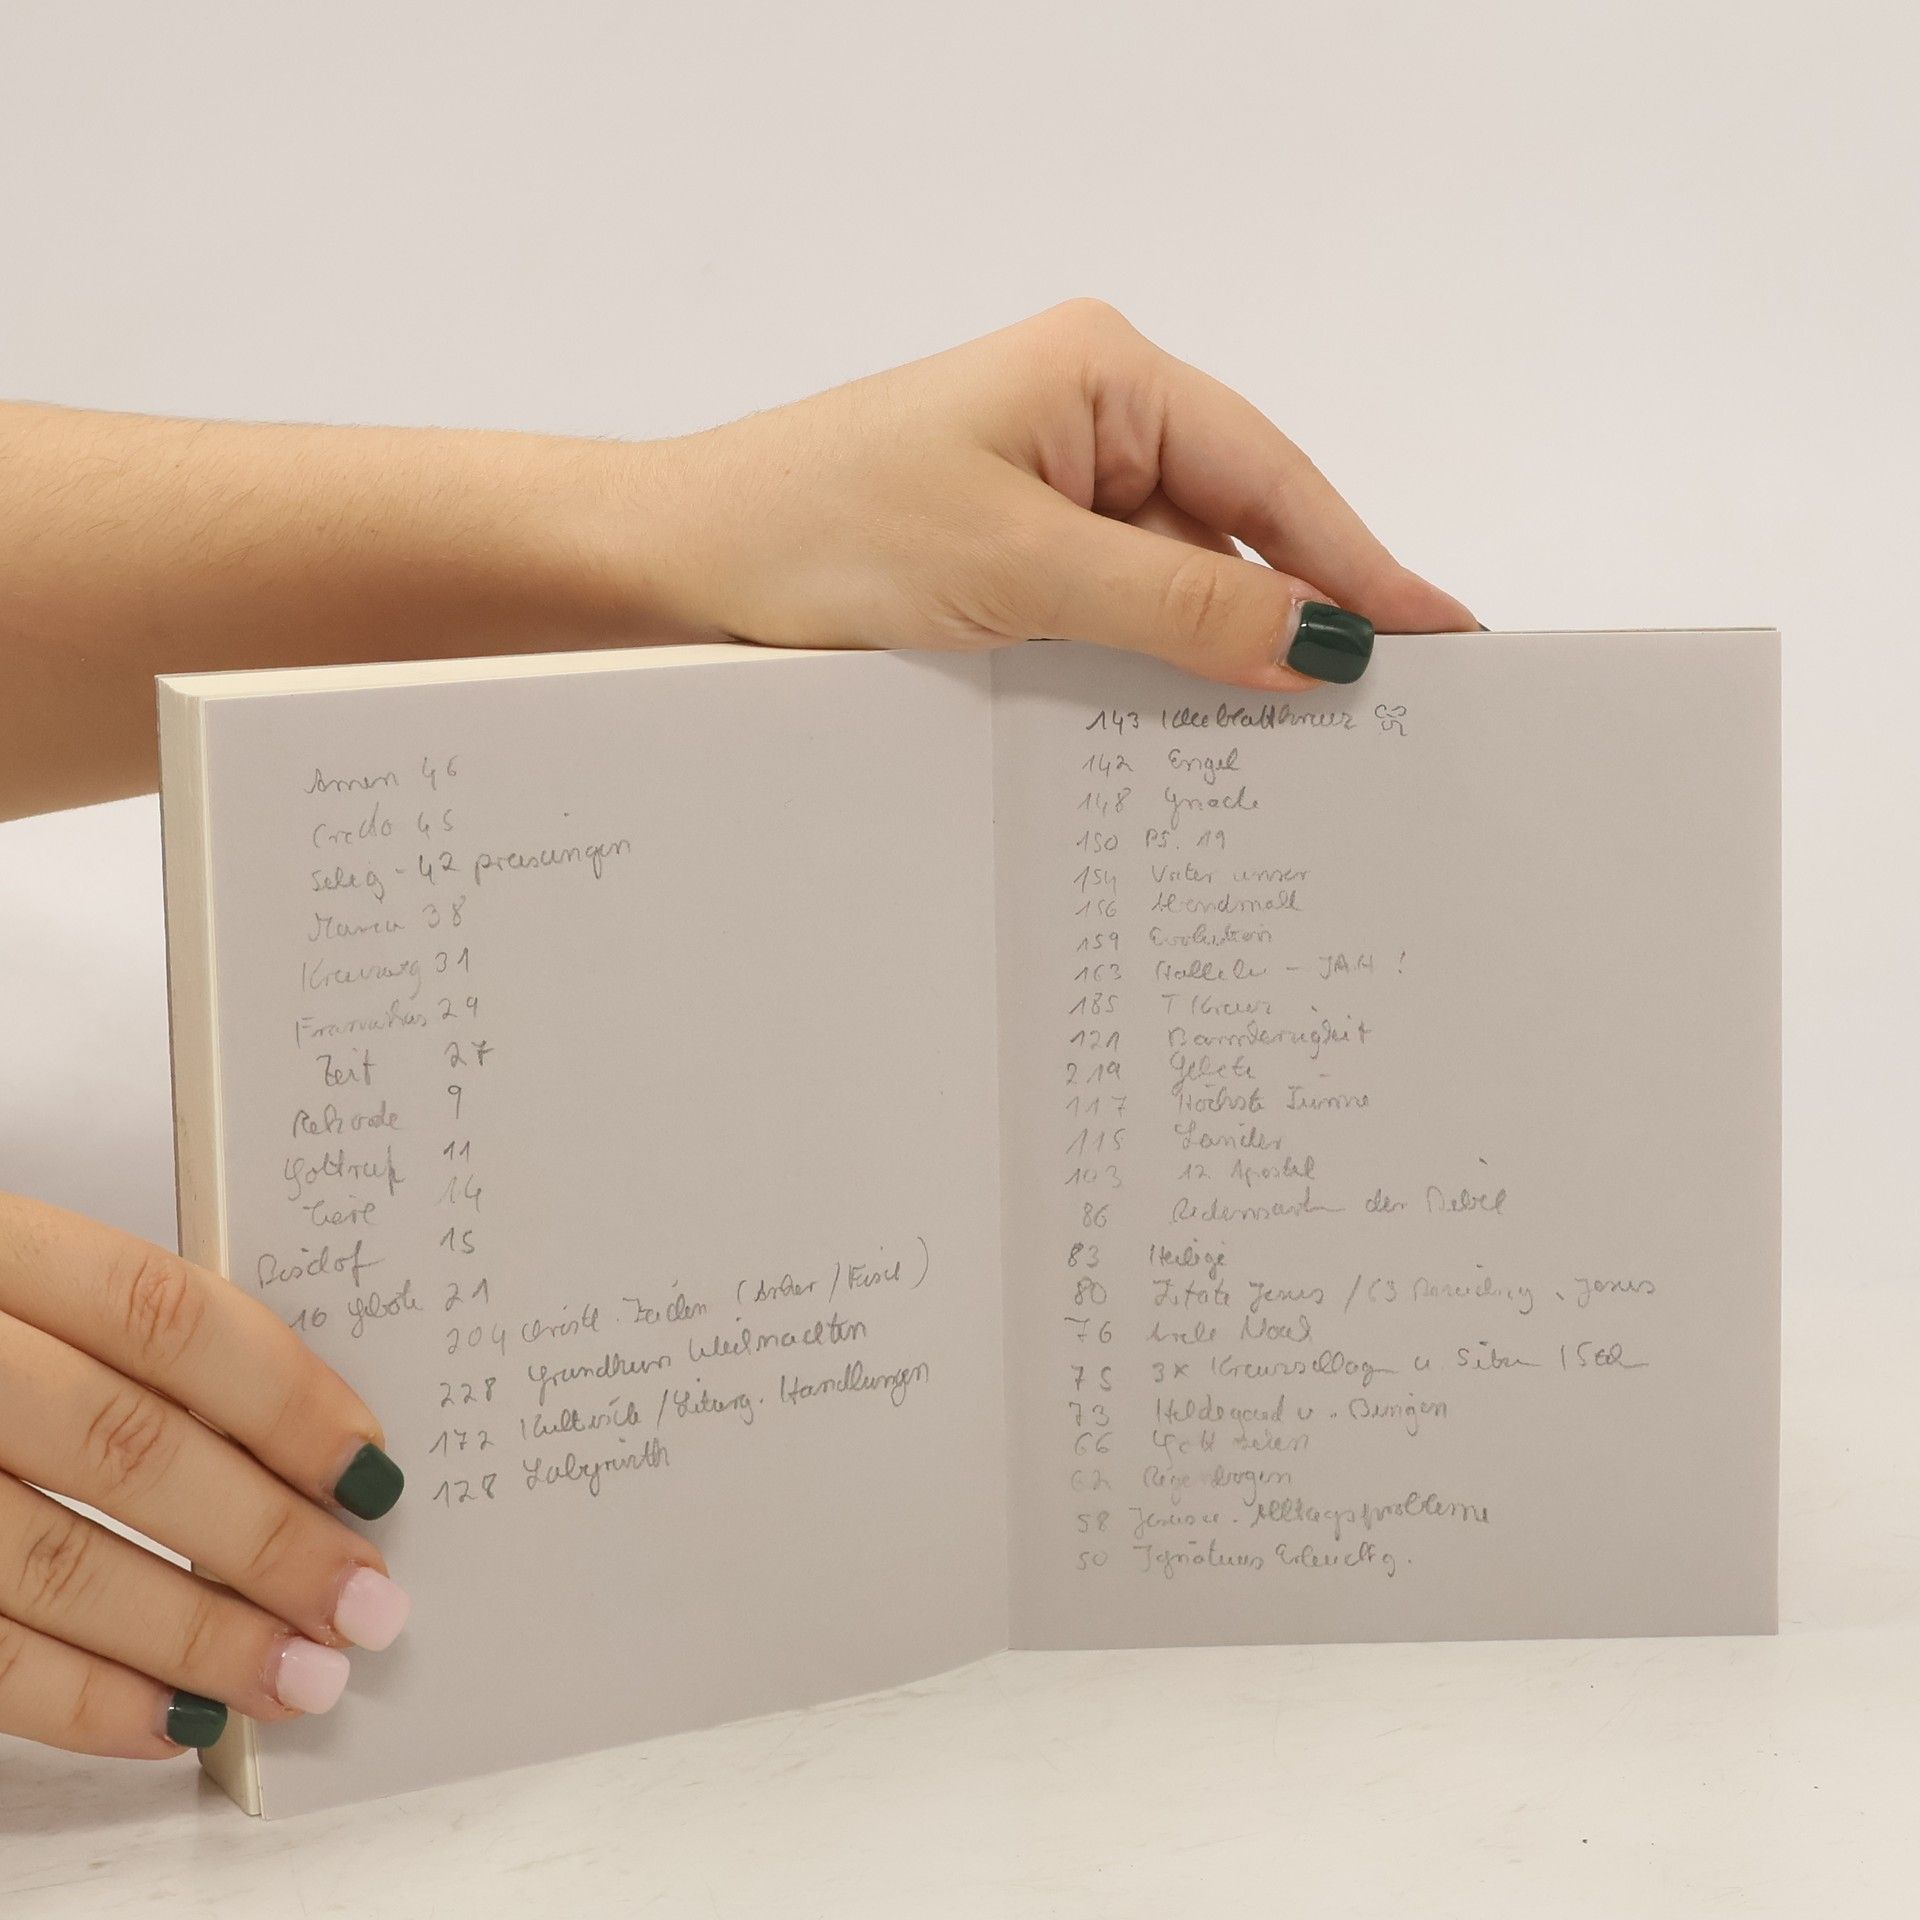 Amen 46
Credo 45
Selig - 42 preisungen
Maria 38
Kreuzweg 31
Franziskus 29
Zeit 27
Rekorde 9
Gottruf 11
Tiere 14
Bischof 15
10 Gebote 21
204 Christl. Zeichen (Anker / Fisch)
228 Grundkurs Weihnachten
172 Kultische / Liturg. Handlungen
128 Labyrinth
143 Kleeblattkreuz
142 Engel
148 Gnade
150 Ps. 19
154 Vater unser
156 Abendmahl
159 Evolution
163 Hallelu - JAH !
185 T Kreuz
121 Barmherzigkeit
219 Gebete
117 Höchste Türme
115 Länder
103 12 Apostel
86 Redensarten der Bibel
83 Heilige
80 Zitate Jesus / 63 Jesus
76 Arche Noah
75 3x Kreuzschlagen u.
73 Hildegard v. Bingen
66 Gott
62 Regenbogen
58 Jesus u. Alltagsprobleme
50 Ignatius Erleuchtg.